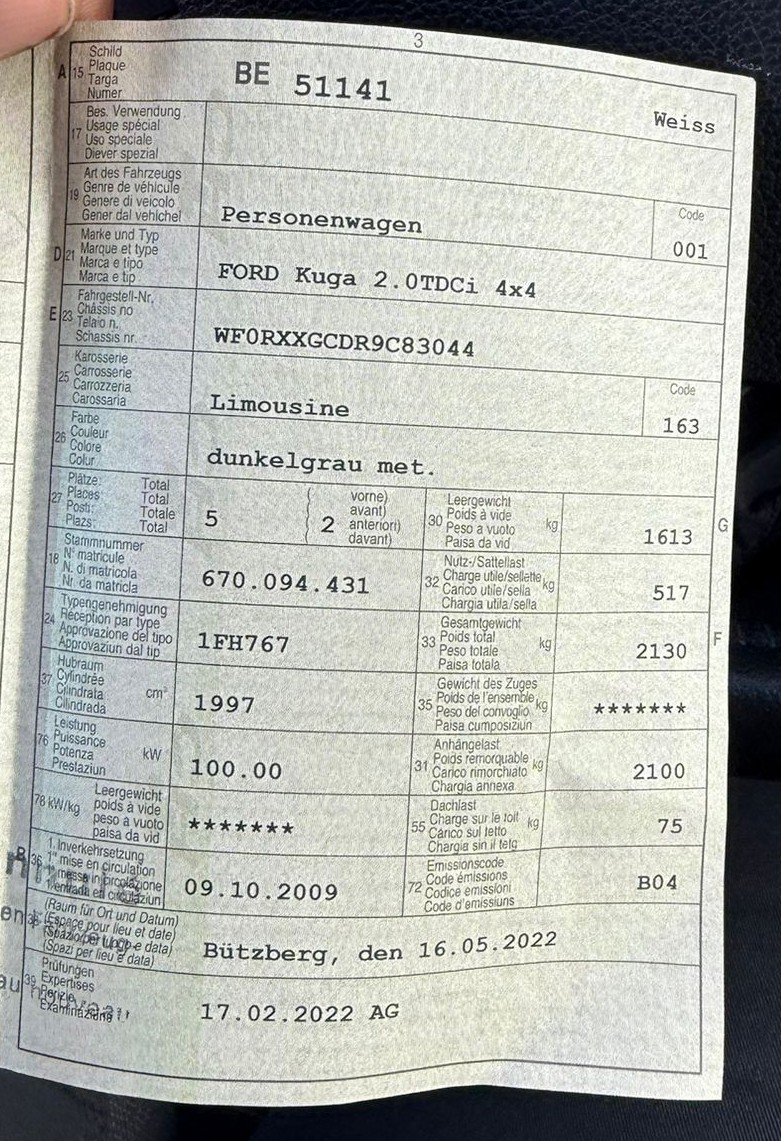 3
A 15 Schild
Plaque
Targa
Numer
BE 51141
Weiss
17 Bes. Verwendung
Usage spécial
Uso speciale
Diever spezial
19 Art des Fahrzeugs
Genre de véhicule
Genere di veicolo
Gener dal vehichel
Personenwagen
Code
001
D 21 Marke und Typ
Marque et type
Marca e tipo
Marca e tip
FORD Kuga 2.0TDCi 4x4
E 23 Fahrgestell-Nr.
Châssis no
Telaio n.
Schassis nr.
WF0RXXGCDR9C83044
25 Karosserie
Carrosserie
Carrozzeria
Carossaria
Limousine
Code
163
26 Farbe
Couleur
Colore
Colur
dunkelgrau met.
27 Plätze: Total
Places: Total
Posti: Totale
Plazs: Total
5
2
vorne)
avant)
anteriori)
davant)
30 Leergewicht
Poids à vide
Peso a vuoto
Paisa da vid
kg
1613
G
18 Stammnummer
N° matricule
N. di matricola
Nr. da matricla
670.094.431
32 Nutz-/Sattellast
Charge utile/sellette
Carico utile/sella
Chargia utila/sella
kg
517
24 Typengenehmigung
Réception par type
Approvazione del tipo
Approvaziun dal tip
1FH767
33 Gesamtgewicht
Poids total
Peso totale
Paisa totala
kg
2130
F
37 Hubraum
Cylindrée
Cilindrata
Cilindrada
cm³
1997
35 Gewicht des Zuges
Poids de l'ensemble
Peso del convoglio
Paisa cumposiziun
kg
*******
76 Leistung
Puissance
Potenza
Prestaziun
kW
100.00
31 Anhängelast
Poids remorquable
Carico rimorchiato
Chargia annexa
kg
2100
78 kW/kg Leergewicht
poids à vide
peso a vuoto
paisa da vid
*******
55 Dachlast
Charge sur le toit
Carico sul tetto
Chargia sin il tetg
kg
75
B 36 1. Inverkehrsetzung
1re mise en circulation
1a messa in circolazione
1. entrada en circulaziun
09.10.2009
72 Emissionscode
Code émissions
Codice emissioni
Code d'emissiuns
B04
38 (Raum für Ort und Datum)
(Espace pour lieu et date)
(Spazio per luogo e data)
(Spazi per lieu e data)
Bützberg, den 16.05.2022
39 Prüfungen
Expertises
Perizie
Examinaziuns
17.02.2022 AG